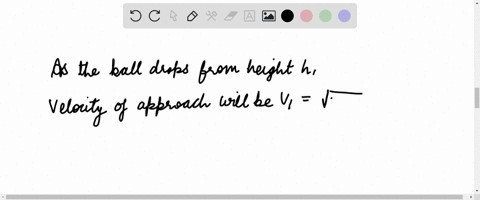 As the ball drops from height h,
Velocity of approach will be V₁ = √